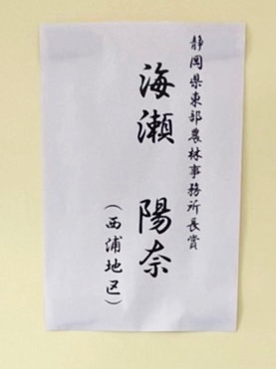 静岡県東部農林事務所長賞
海瀬 陽奈
（西浦地区）